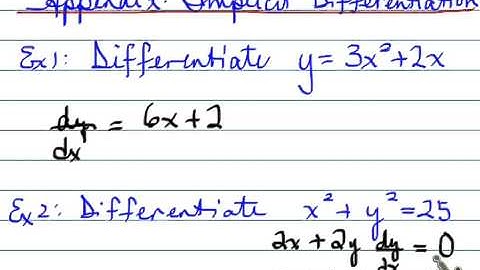 Appendix: Implicit Differentiation
Ex1: Differentiate y = 3x²+2x
dy/dx = 6x+2
Ex2: Differentiate x²+y²=25
2x+2y dy/dx = 0